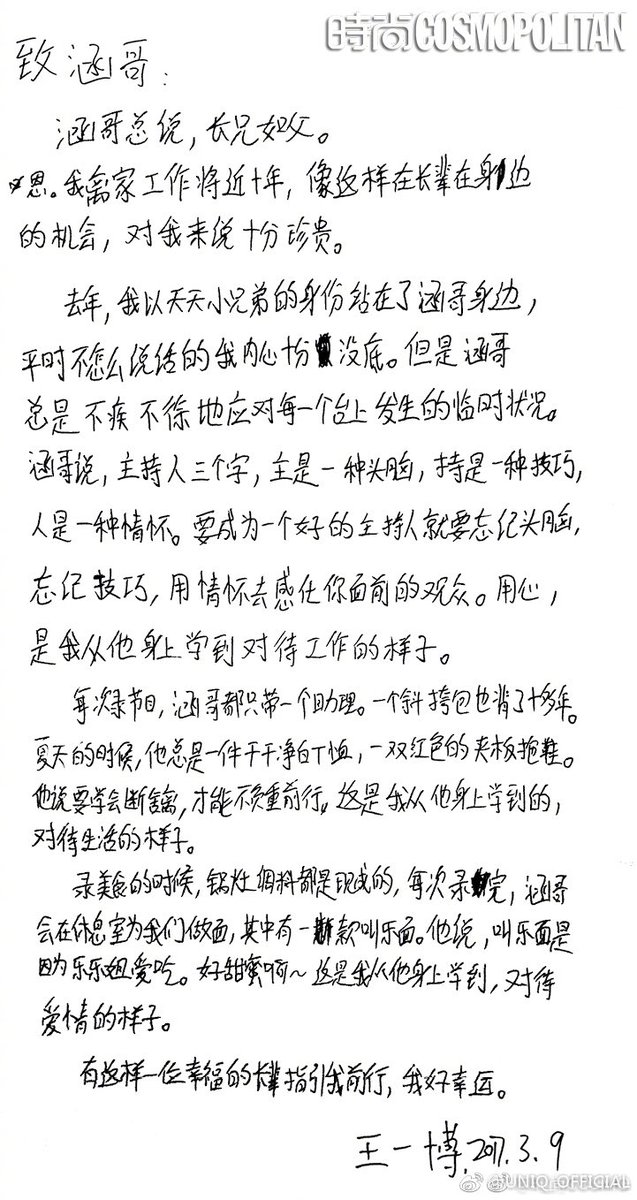 時尚COSMOPOLITAN
致涵哥：
涵哥总说，长兄如父。
恩。我离家工作将近十年，像这样在长辈在身边
的机会，对我来说十分珍贵。
去年，我以天天小兄弟的身份站在了涵哥身边，
平时不怎么说话的我内心十分没底。但是涵哥
总是不疾不徐地应对每一个台上发生的临时状况。
涵哥说，主持人三个字，主是一种头脑，持是一种技巧，
人是一种情怀。要成为一个好的主持人就要忘记头脑，
忘记技巧，用情怀去感化你面前的观众。用心，
是我从他身上学到对待工作的样子。
每次录节目，涵哥都只带一个助理。一个斜挎包也背了十多年。
夏天的时候，他总是一件干干净白T恤，一双红色的夹板拖鞋。
他说要学会断舍离，才能不负重前行。这是我从他身上学到的，
对待生活的样子。
录美食的时候，锅灶调料都是现成的，每次录完，涵哥
会在休息室为我们做面，其中有一款叫乐面。他说，叫乐面是
因为乐乐姐爱吃。好甜蜜啊～这是我从他身上学到，对待
爱情的样子。
有这样一位幸福的长辈指引我前行，我好幸运。
王一博.2017.3.9
@UNIQ_OFFICIAL